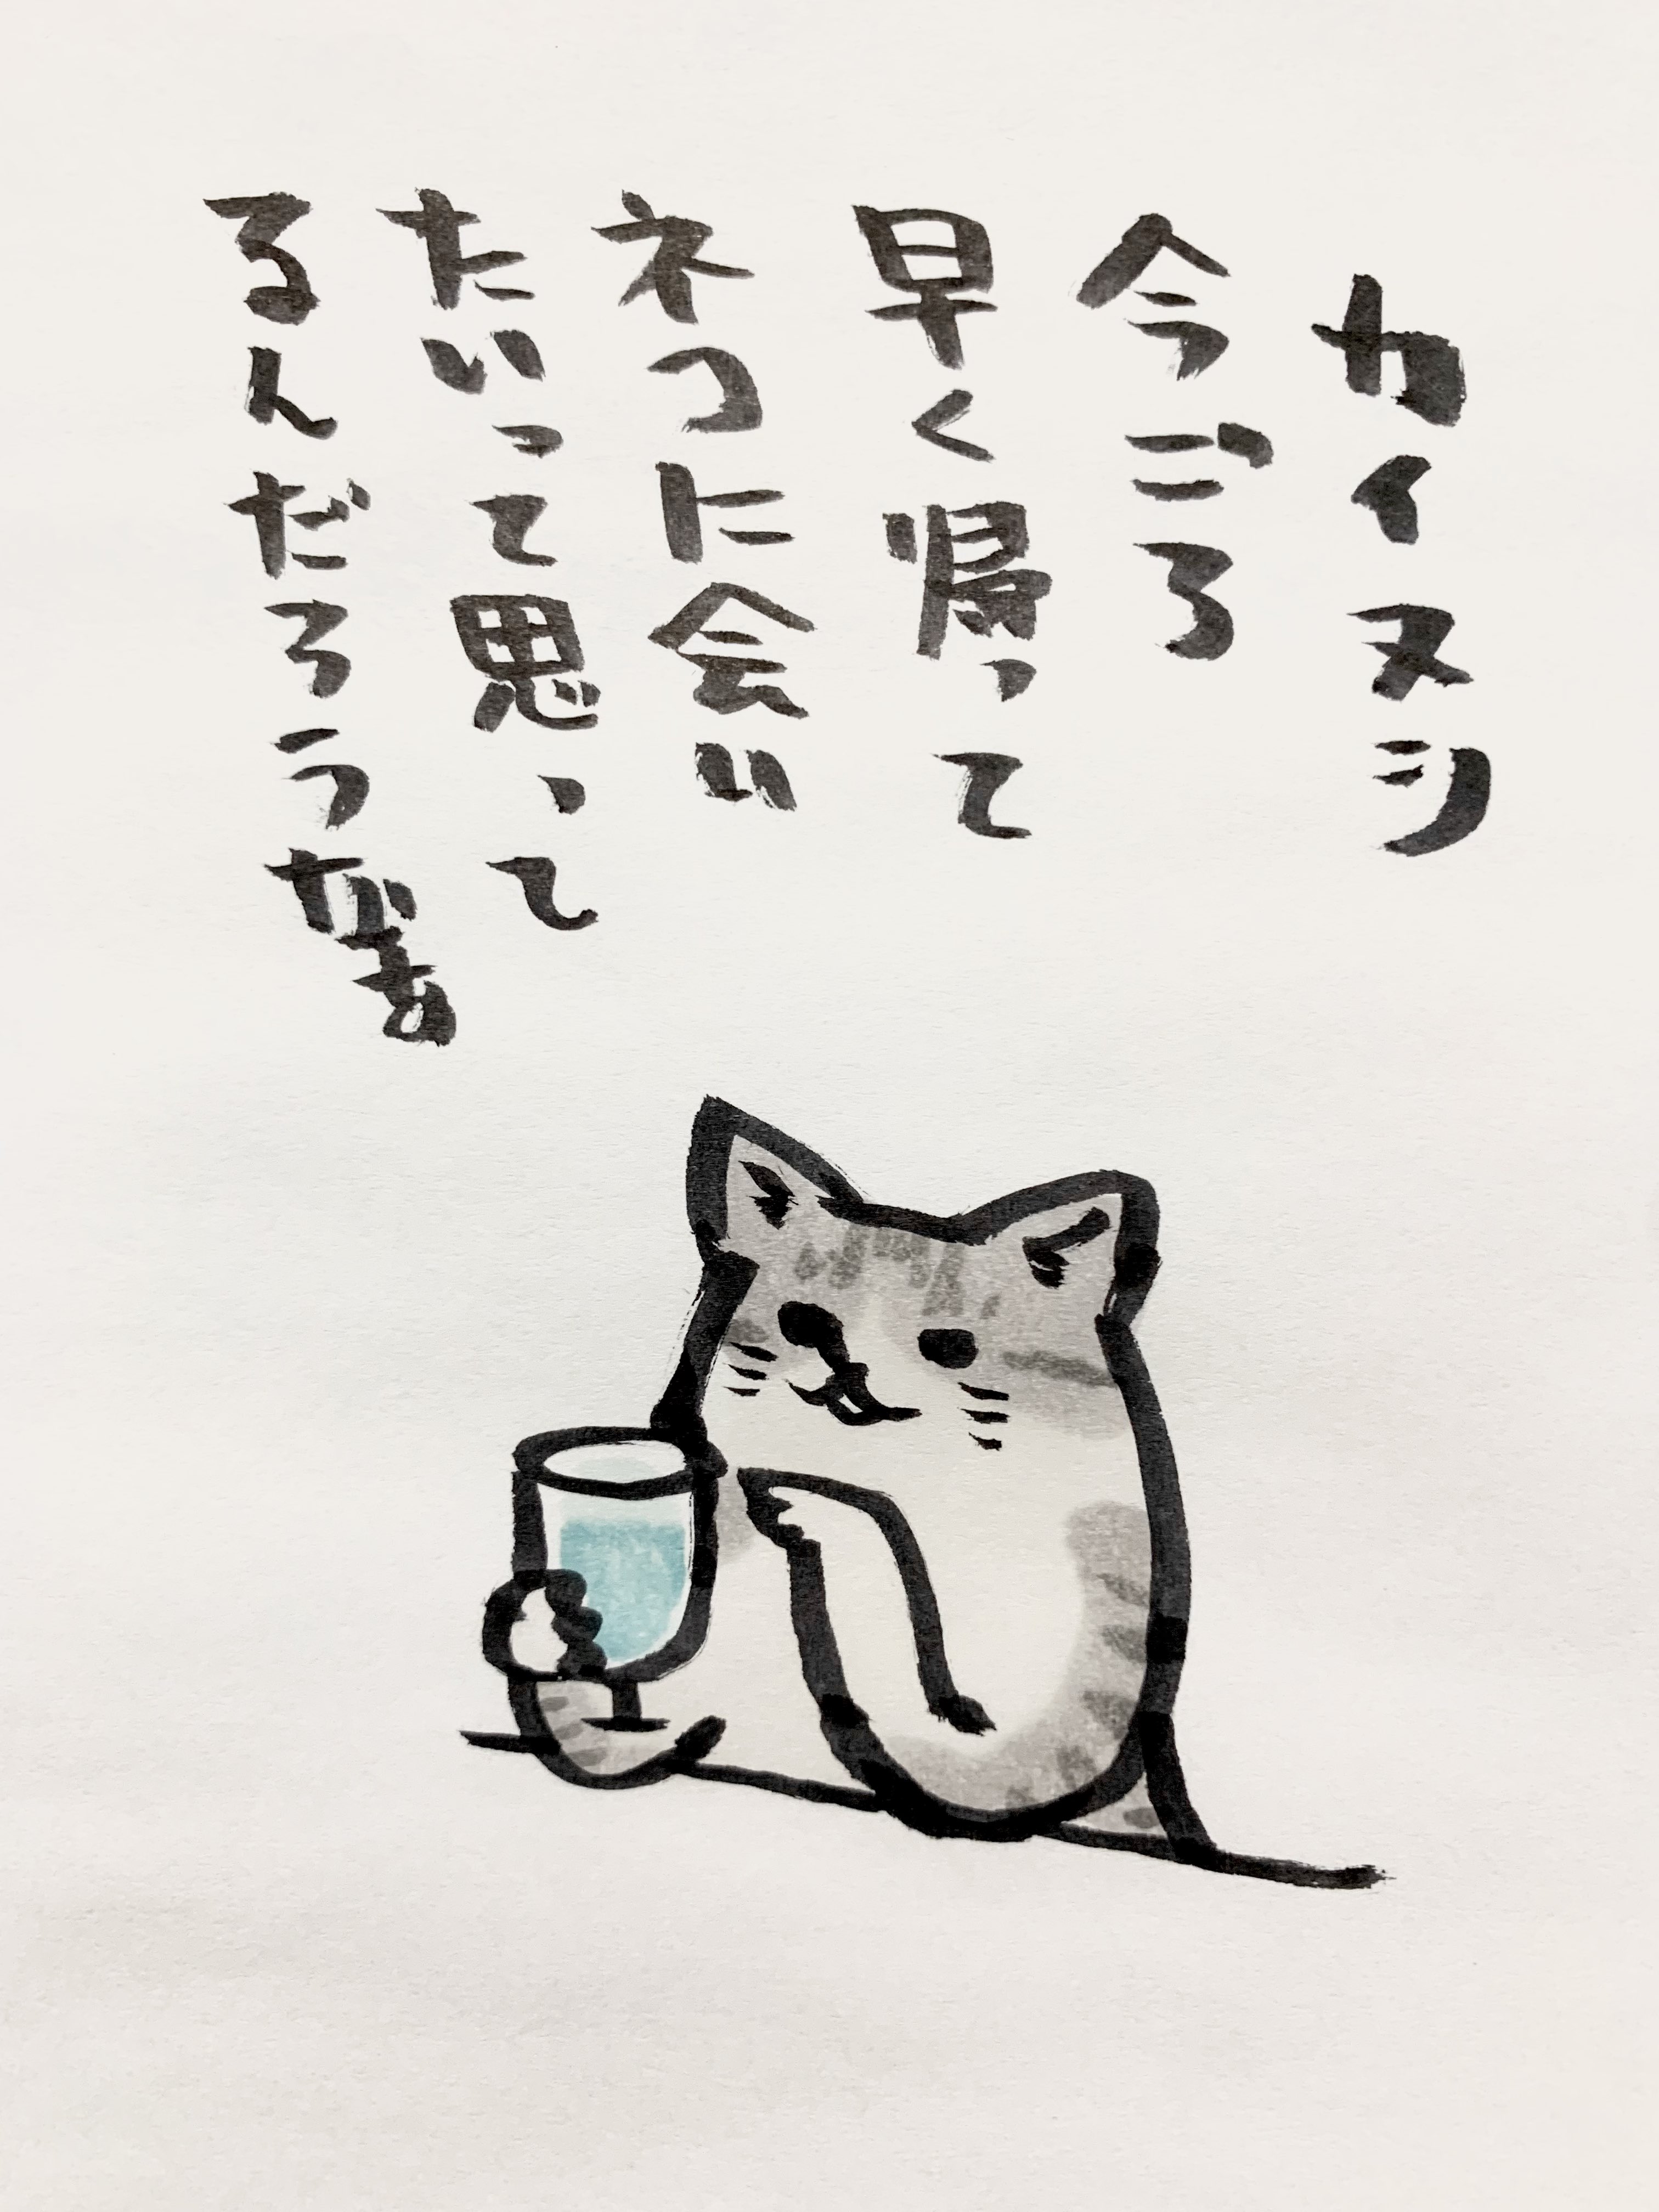 カイヌシ
今ごろ
早く帰って
ネコに会い
たいって思って
るんだろうなあ